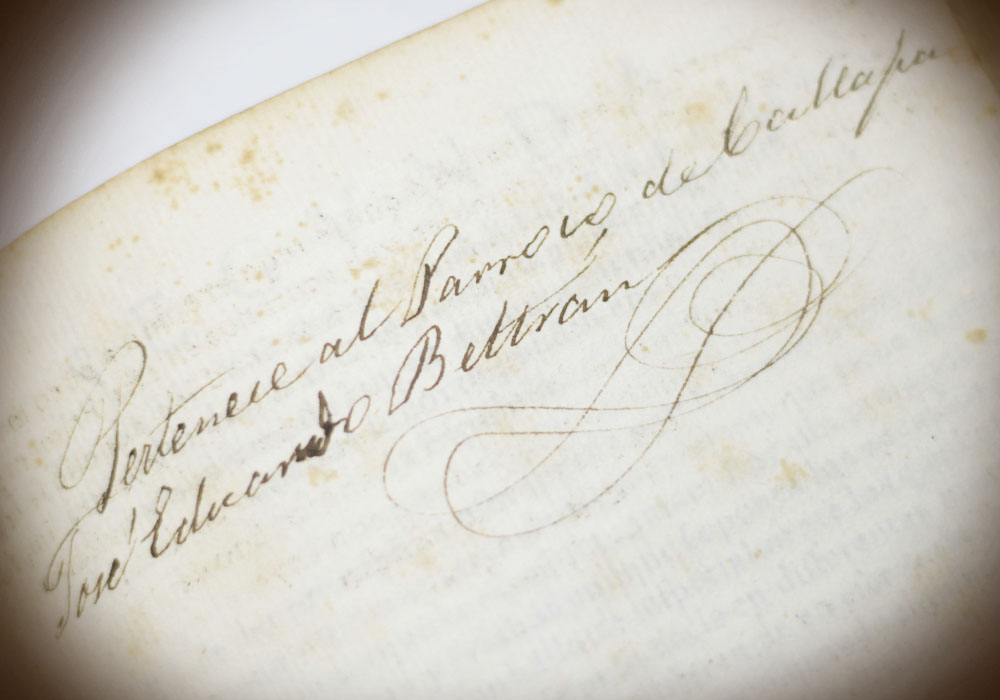 Pertenece al Parroco de Callapa
José Eduardo Beltran